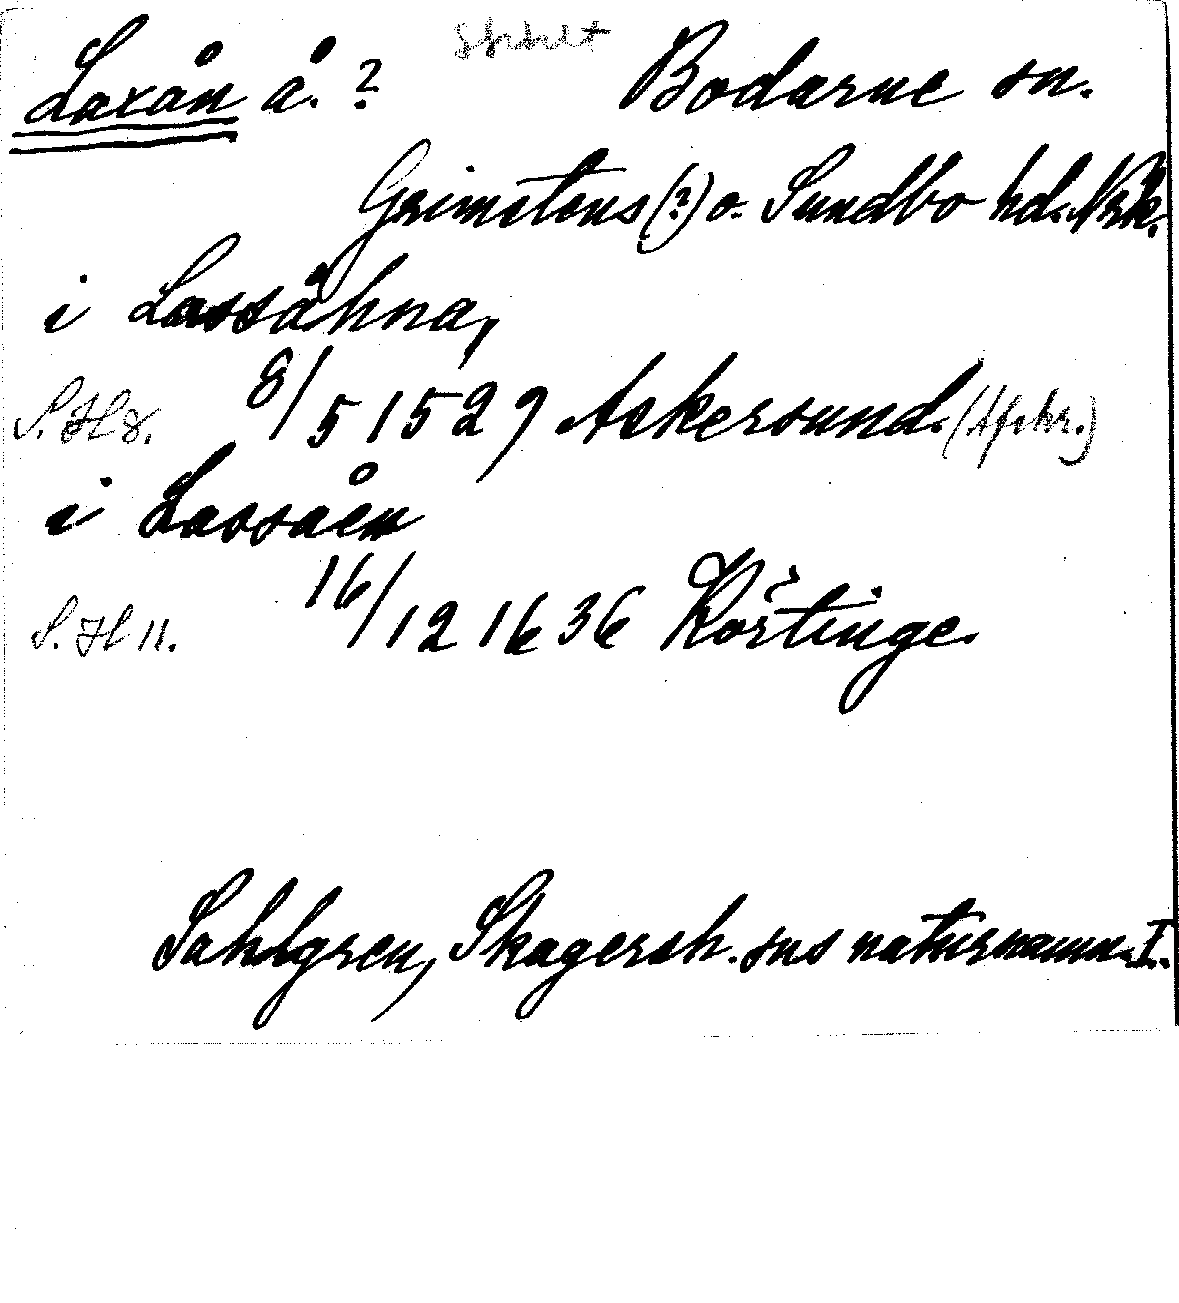 Laxån å. ? Bodarne sn.
Grimstens (?) o. Sundbo hd. Nrk.
i Lassåhna,
S. H 8. 8/5 1527 Askersund. (Afskr.)
i Lassåen
S. H 11. 16/12 1636 Körtinge.
Sahlgren, Skagersh. sns naturnamn. I.